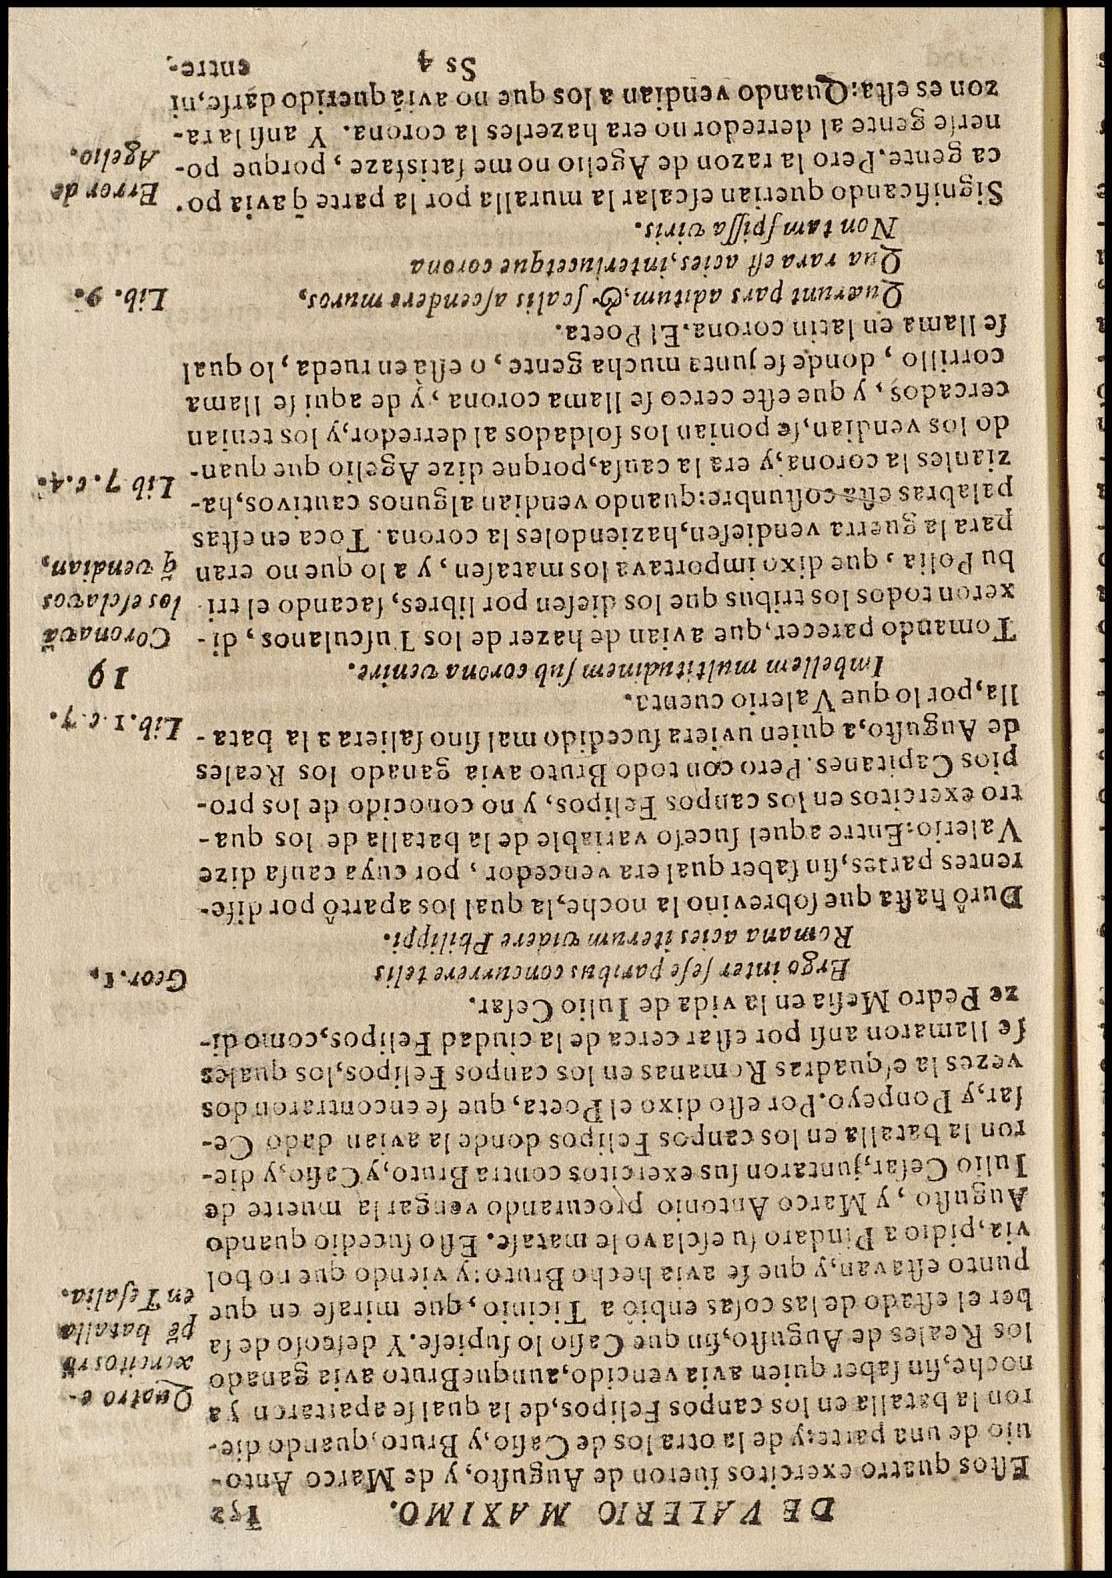 DE VALERIO MAXIMO.
Eſtos quatro exercitos fueron de Auguſto, y de Marco Anto-
nio de una parte; y de la otra los de Caſio, y Bruto, quando die-
ron la batalla en los canpos Felipos, de la qual ſe apartaron ya
noche, ſin ſaber quien avia vencido, aunque Bruto avia ganado
los Reales de Auguſto, ſin que Caſio lo ſupieſe. Y deſeoſo de ſa
ber el eſtado de las coſas enbiô a Ticinio, que miraſe en que
punto eſtavan, y que ſe avia hecho Bruto: y viendo que no bol
via, pidio a Pindaro ſu eſclavo le mataſe. Eſto ſucedio quando
Auguſto, y Marco Antonio procurando vengar la muerte de
Iulio Ceſar, juntaron ſus exercitos contra Bruto, y Caſio, y die-
ron la batalla en los canpos Felipos donde la avian dado Ce-
ſar, y Ponpeyo. Por eſto dixo el Poeta, que ſe encontraron dos
vezes las eſquadras Romanas en los canpos Felipos, los quales
ſe llamaron anſi por eſtar cerca de la ciudad Felipos, como di-
ze Pedro Meſia en la vida de Iulio Ceſar.
Ergo inter ſeſe paribus concurrere telis
Romana acies iterum videre Philippi.
Durô haſta que ſobrevino la noche, la qual los apartô por dife-
rentes partes, ſin ſaber qual era vencedor, por cuya cauſa dize
Valerio: Entre aquel ſuceſo variable de la batalla de los qua-
tro exercitos en los canpos Felipos, y no conocido de los pro-
pios Capitanes. Pero con todo Bruto avia ganado los Reales
de Auguſto, a quien uviera ſucedido mal ſino ſaliera a la bata-
lla, por lo que Valerio cuenta.
Imbellem multitudinem ſub corona venire.
Tomando parecer, que avian de hazer de los Tuſculanos, di-
xeron todos los tribus que los dieſen por libres, ſacando el tri
bu Polia, que dixo importava los mataſen, y a lo que no eran
para la guerra vendieſen, haziendoles la corona. Toca en eſtas
palabras eſta coſtunbre: quando vendian algunos cautivos, ha-
zianles la corona, y era la cauſa, porque dize Agelio que quan-
do los vendian, ſe ponian los ſoldados al derredor, y los tenian
cercados, y que eſte cerco ſe llama corona, y de aqui ſe llama
corrillo, donde ſe junta mucha gente, o eſta en rueda, lo qual
ſe llama en latin corona. El Poeta.
Quærunt pars aditum, & ſcalis aſcendere muros,
Qua rara eſt acies, interlucetque corona
Non tam ſpiſſa viris.
Significando querian eſcalar la muralla por la parte q̃ avia po-
ca gente. Pero la razon de Agelio no me ſatisfaze, porque po-
nerſe gente al derredor no era hazerles la corona. Y anſi la ra-
zon es eſta: Quando vendian a los que no aviâ querido darſe, ni
Ss 4
entre-
Quatro e-
xercitos rõ
pẽ batalla
en Teſalia.
Geor. 1.
Lib. 1. c. 7.
19
Coronavã
los eſclavos
q̃ vendian,
Lib 7. c. 4.
Lib. 9.
Error de
Agelio.